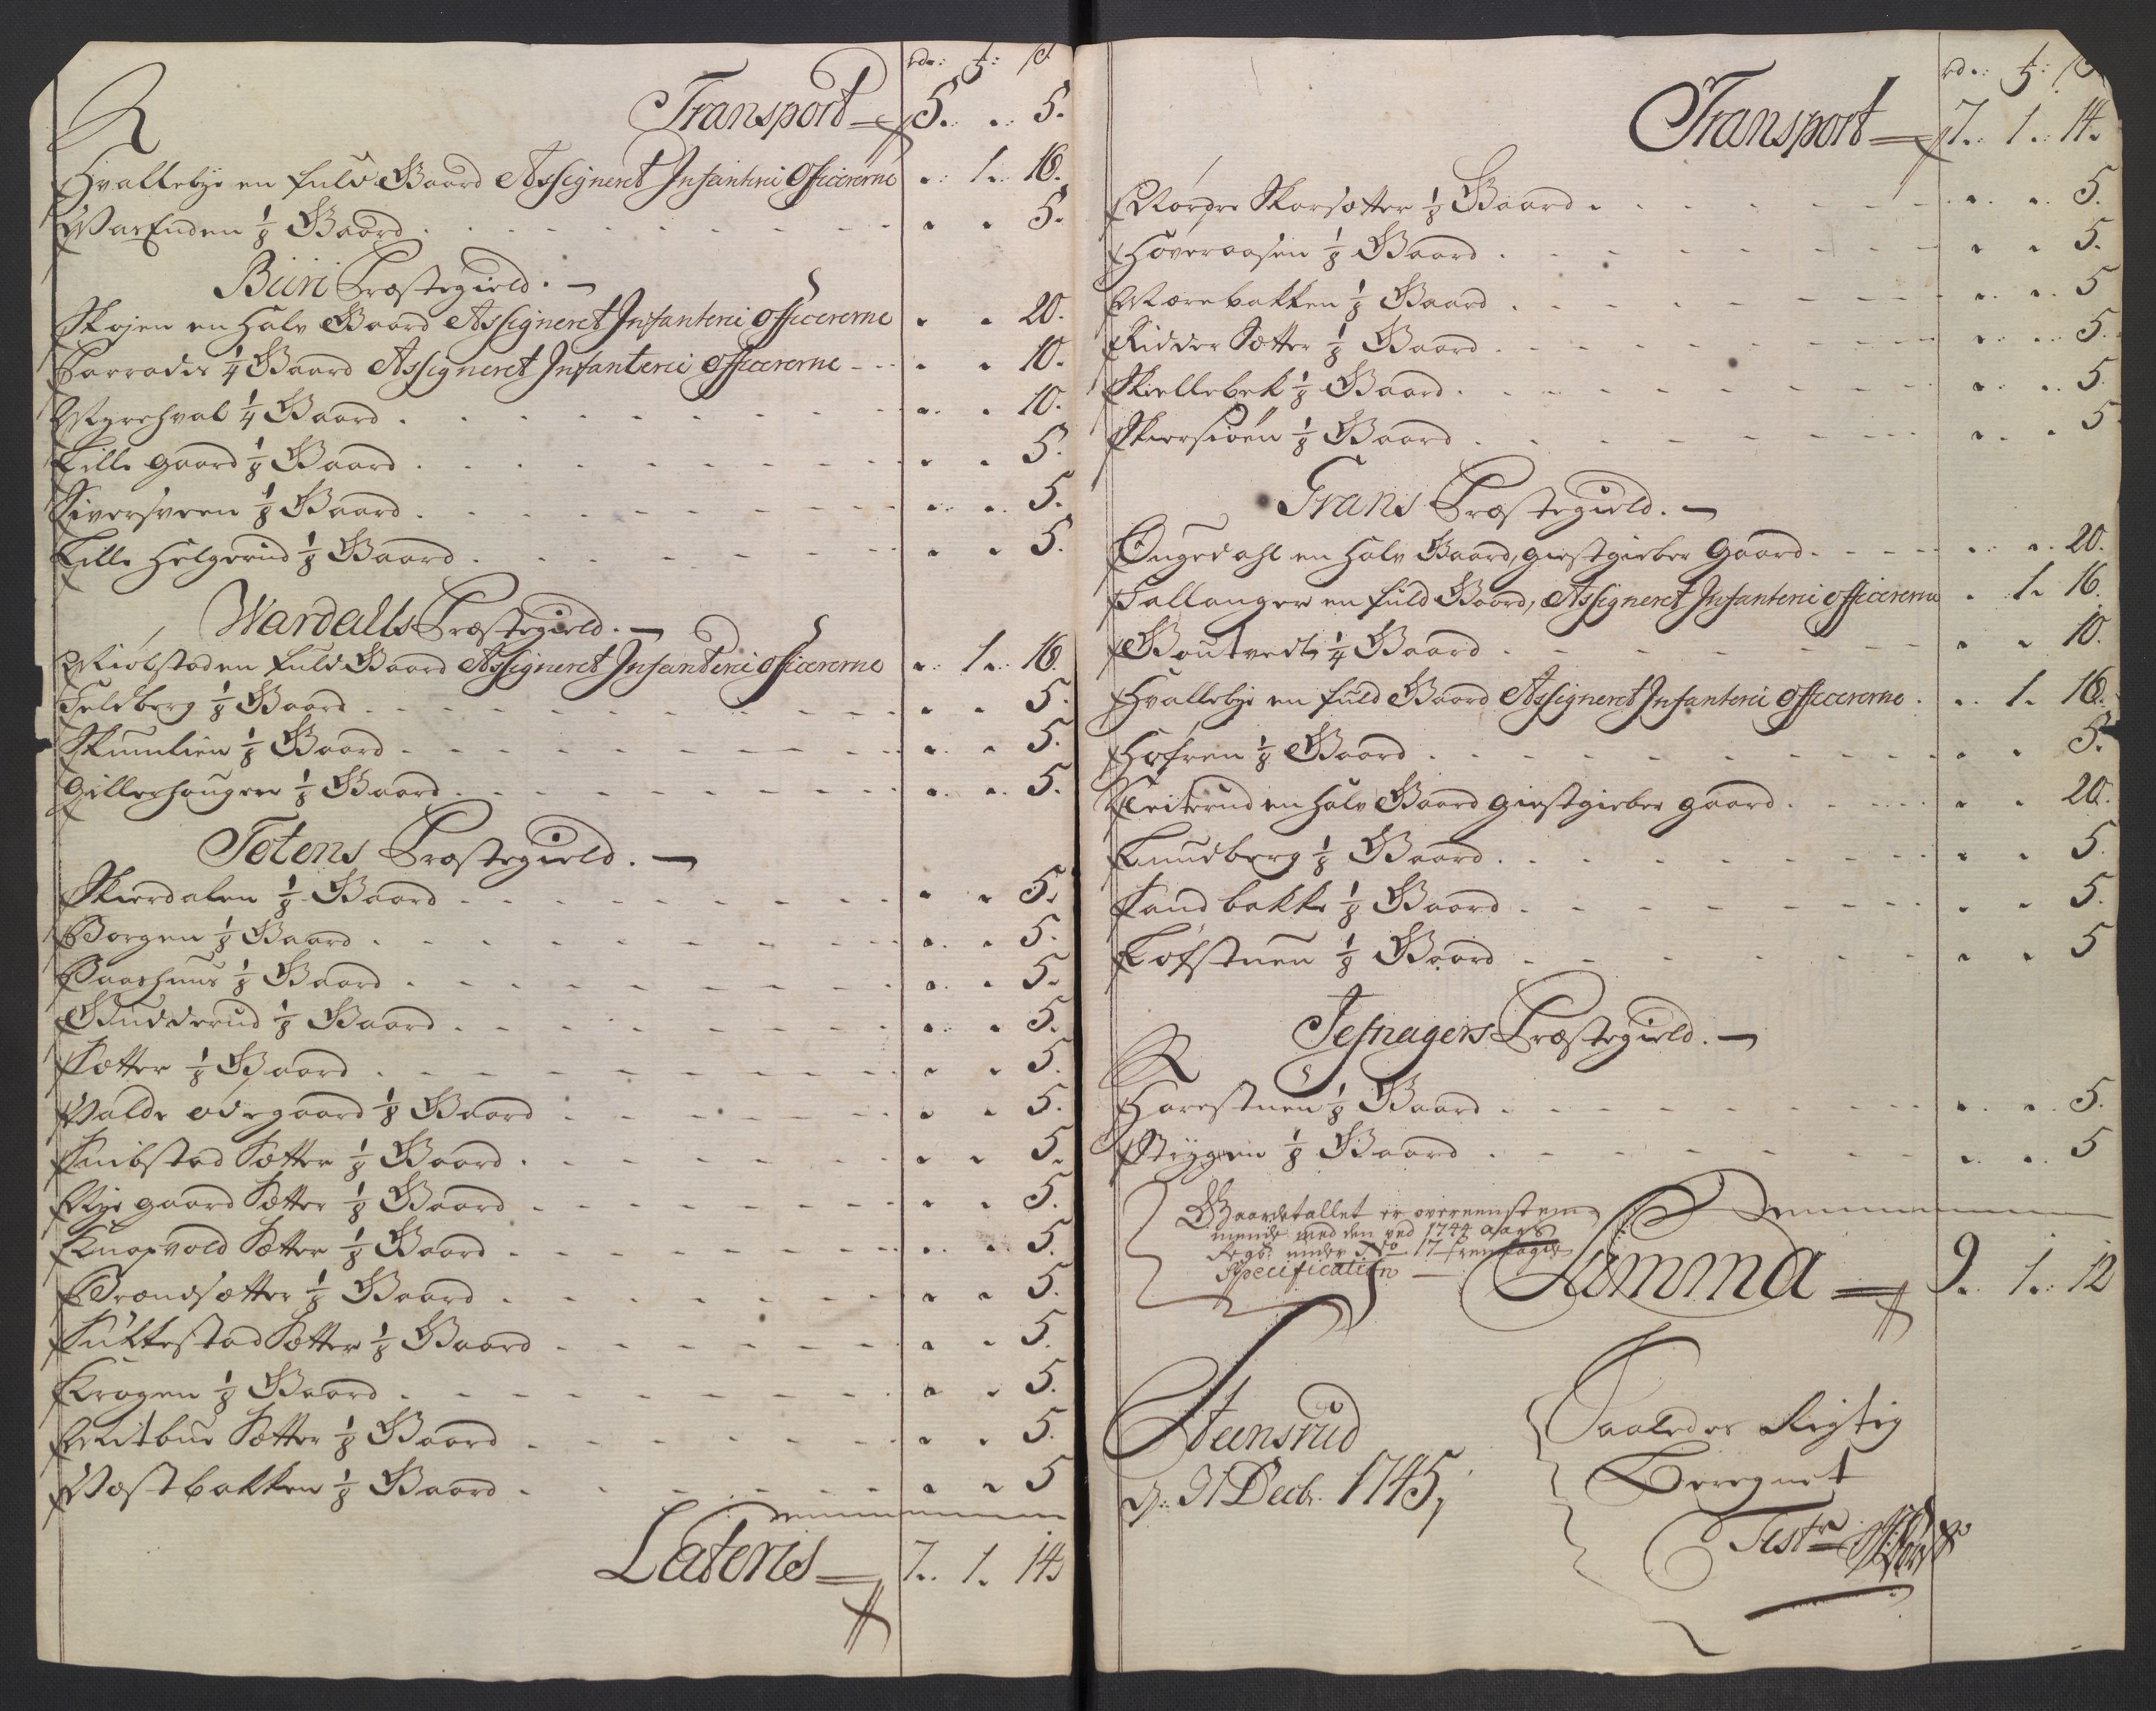 rdr: ƶ: ß
Transport 5. .. 5.
Hvallebye en fuld Gaard Assigneret Infanteri Officererne .. 1.. 16.
VarEnden 1/8 Gaard .. .. 5.
Biiri Præstegield.
Skøjen en halv Gaard Assigneret Infanteri Officererne .. .. 20.
1/4 Gaard Assigneret Infanterie Officererne .. .. 10.
Myrehval 1/4 Gaard .. .. 10.
Lille gaard 1/8 Gaard .. .. 5.
Siversveen 1/8 Gaard .. .. 5.
Lille Helgerud 1/8 Gaard .. .. 5.
Wardalls Præstegield.
Miølstad en fuld Gaard Assigneret Infanterie Officererne .. 1.. 16.
Feldberg 1/8 Gaard .. .. 5.
Skumlien 1/8 Gaard .. .. 5.
Gillerhaugen 1/8 Gaard .. .. 5.
Totens Præstegield.
Skierdalen 1/8 Gaard .. .. 5.
Borgen 1/8 Gaard .. .. 5.
Paashuus 1/8 Gaard .. .. 5.
Gudderud 1/8 Gaard .. .. 5.
Sætter 1/8 Gaard .. .. 5.
Valde ødegaard 1/8 Gaard .. .. 5.
Snibstad Sætter 1/8 Gaard .. .. 5.
Nye gaard Sætter 1/8 Gaard .. .. 5.
Knapvold Sætter 1/8 Gaard .. .. 5.
Brandsætter 1/8 Gaard .. .. 5.
Sukkestad Sætter 1/8 Gaard .. .. 5.
Kragen 1/8 Gaard .. .. 5.
Mitbue Sætter 1/8 Gaard .. .. 5.
Væstbakken 1/8 Gaard .. .. 5
Lateris 7.. 1. 14.
rdr: ƶ: ß
Transport 7.. 1.. 14.
Nordre Skarsætter 1/8 Gaard .. .. 5.
Høveraasen 1/8 Gaard .. .. 5.
Mærebakken 1/8 Gaard .. .. 5
Ridder Sætter 1/8 Gaard .. .. 5.
Skiellebek 1/8 Gaard .. .. 5.
Skiersiøen 1/8 Gaard .. .. 5
Grans Præstegield.
Ougedahl en halv Gaard, giestgieber Gaard .. .. 20.
Hallanger en fuld Gaard, Assigneret Infanterie officererne .. 1.. 16.
Goutvedt 1/4 Gaard .. .. 10.
Hvallebye en fuld Gaard Assigneret Infanterie Officererne .. 1. 16.
Hofren 1/8 Gaard .. .. 5.
Neiterud en halv Gaard giestgieber gaard .. .. 20.
Knudberg 1/8 Gaard .. .. 5.
Sandbakke 1/8 Gaard .. .. 5.
Lofstuen 1/8 Gaard .. .. 5
Jefnagers Præstegield.
Harestuen 1/8 Gaard .. .. 5.
Styggen 1/8 Gaard .. .. 5
Gaardetallet er overeenstem
mende med den ved 1744 aars
Regb: under No 17 fremlagde
Specification
Summa 9.. 1.. 12
Steensrud
d: 31 Decbr. 1745,
Saaledes Rigtig
Beregnet
Test